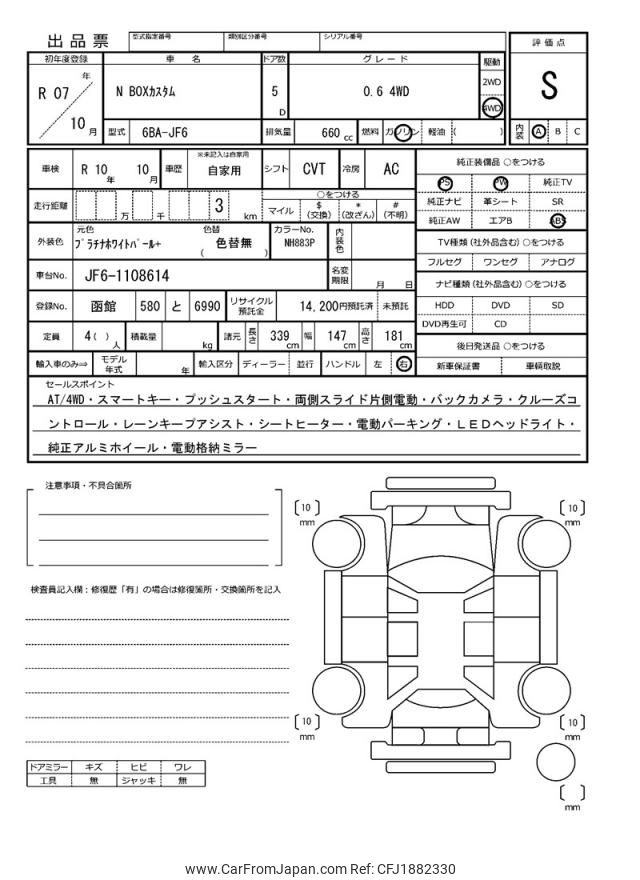 出品票
型式指定番号 類別区分番号 シリアル番号
評価点
S
内装 A B C
初年度登録 車名 ドア数 グレード 駆動
R 07 年 10 月
N BOXカスタム
5 D
0.6 4WD
2WD
4WD
型式 6BA-JF6 排気量 660 cc 燃料 ガソリン 軽油 ( )
車検 R 10 年 10 月 車歴 ※未記入は自家用 自家用 シフト CVT 冷房 AC
走行距離 万 千 3 km
○をつける
マイル $(交換) *(改ざん) #(不明)
外装色 元色 プラチナホワイトパール+ 色替 ( 色替無 ) カラーNo. NH883P 内装色
車台No. JF6-1108614 名変期限 月 日
登録No. 函館 580 と 6990 リサイクル預託金 14,200円預託済 未預託
定員 4( )人 積載量 kg 諸元 長さ 339 cm 幅 147 cm 高さ 181 cm
輸入車のみ⇒ モデル年式 年 輸入区分 ディーラー 並行 ハンドル 左 右
純正装備品 ○をつける
PS PW 純正TV
純正ナビ 革シート SR
純正AW エアB ABS
TV種類(社外品含む)○をつける
フルセグ ワンセグ アナログ
ナビ種類(社外品含む)○をつける
HDD DVD SD
DVD再生可 CD
後日発送品 ○をつける
新車保証書 車輌取説
セールスポイント
AT/4WD・スマートキー・プッシュスタート・両側スライド片側電動・バックカメラ・クルーズコ
ントロール・レーンキープアシスト・シートヒーター・電動パーキング・LEDヘッドライト・
純正アルミホイール・電動格納ミラー
注意事項・不具合箇所
検査員記入欄:修復歴「有」の場合は修復箇所・交換箇所を記入
[10] mm
[10] mm
[10] mm
[10] mm
[ ] mm
ドアミラー キズ ヒビ ワレ
工具 無 ジャッキ 無
www.CarFromJapan.com Ref: CFJ1882330